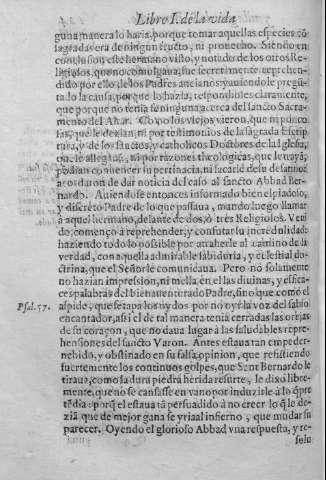 Libro I. de la vida
guna manera lo haria, porque tomar aquellas especies cõ
sagradas era de ningun fructo, ni prouecho. Siendo en
conclusion este hermano visto, y notado de los otros Re
ligiosos, que no comulgaua, fue secretamente reprehen-
dido por ello de los Padres ancianos: y auiendole pregũ
tado la causa, porque lo hazia, respondioles claramente,
que porque no tenia fe ninguna acerca del sancto Sacra-
mento del Altar. Como los viejos vieron, que ni por co
sas, que le dezian, ni por testimonios de la sagrada Escrip
tura, y de los sanctos, y catholicos Doctores de la Iglesia,
que le allegauã, ni por razones theologicas, que le trayã,
podian conuencer su pertinacia, ni sacarle de su desatino,
acordaron de dar noticia del caso al sancto Abbad Ber-
nardo. Auiendose entonces informado bien el piadoso,
y discreto Padre de lo que passaua, mando luego llamar
à aquel hermano, delante de dos, ò tres Religiosos. Veni
do, començò à reprehender, y confutar su incredulidad:
haziendo todo lo possible por atraherle al camino de la
verdad, con aquella admirable sabiduria, y celestial do-
ctrina, que el Señor le comunicaua. Pero no solamente
no hazian impresion, ni mella, en el las diuinas, y effica-
ces palabras del bienauenturado Padre, sino que como el
Psal. 57. aspide, que se tapa los oydos por no oyr la voz del sabio
encantador, assi el de tal manera tenia cerradas las orejas
de su coraçon, que no daua lugar à las saludables repre-
hensiones del sancto Varon. Antes estaua tan emper-
nebido, y obstinado en su falsa opinion, que resistiendo
fuertemente los continuos golpes, que Sant Bernardo le
tiraua, como la dura piedra herida resurte, le dixo libre-
mente, que no se cansasse en vano por induzirle à lo q̃ pre
tẽdia: porq̃ el estaua tã persuadido à no creer lo q̃ le de-
ziã, que de mejor gana se yria al infierno, que mudar su
parecer. Oyendo el glorioso Abbad vna respuesta, y re-
solu